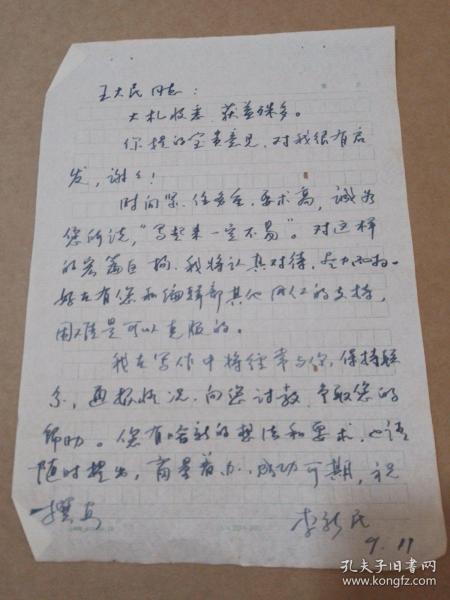 王大民同志:
大札收悉,获益殊多。
你提的宝贵意见,对我很有启
发,谢々!
时间紧、任务重、要求高,诚如
您所说,“写起来一定不易”。对这样
的宏篇巨构,我将认真对待,尽力而为。
好在有您和编辑部其他同仁的支持,
困难是可以克服的。
我在写作中将经常与你保持联
系,通报情况,向您讨教,争取您的
帮助。您有啥新的想法和要求,也请
随时提出,商量着办,成功可期,祝
撰安
李新民
9.11
孔夫子旧书网
www.kongfz.com